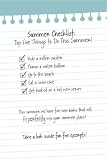 Summer Checklist:
Top Five Things to Do This Summer!
Ride a roller coaster
Throw a water balloon
Go to the beach
Eat a snow cone
Get hooked on a hot new series
This summer we have five new books that will
fit perfectly into your summer plans!
Take a look inside for five excerpts!